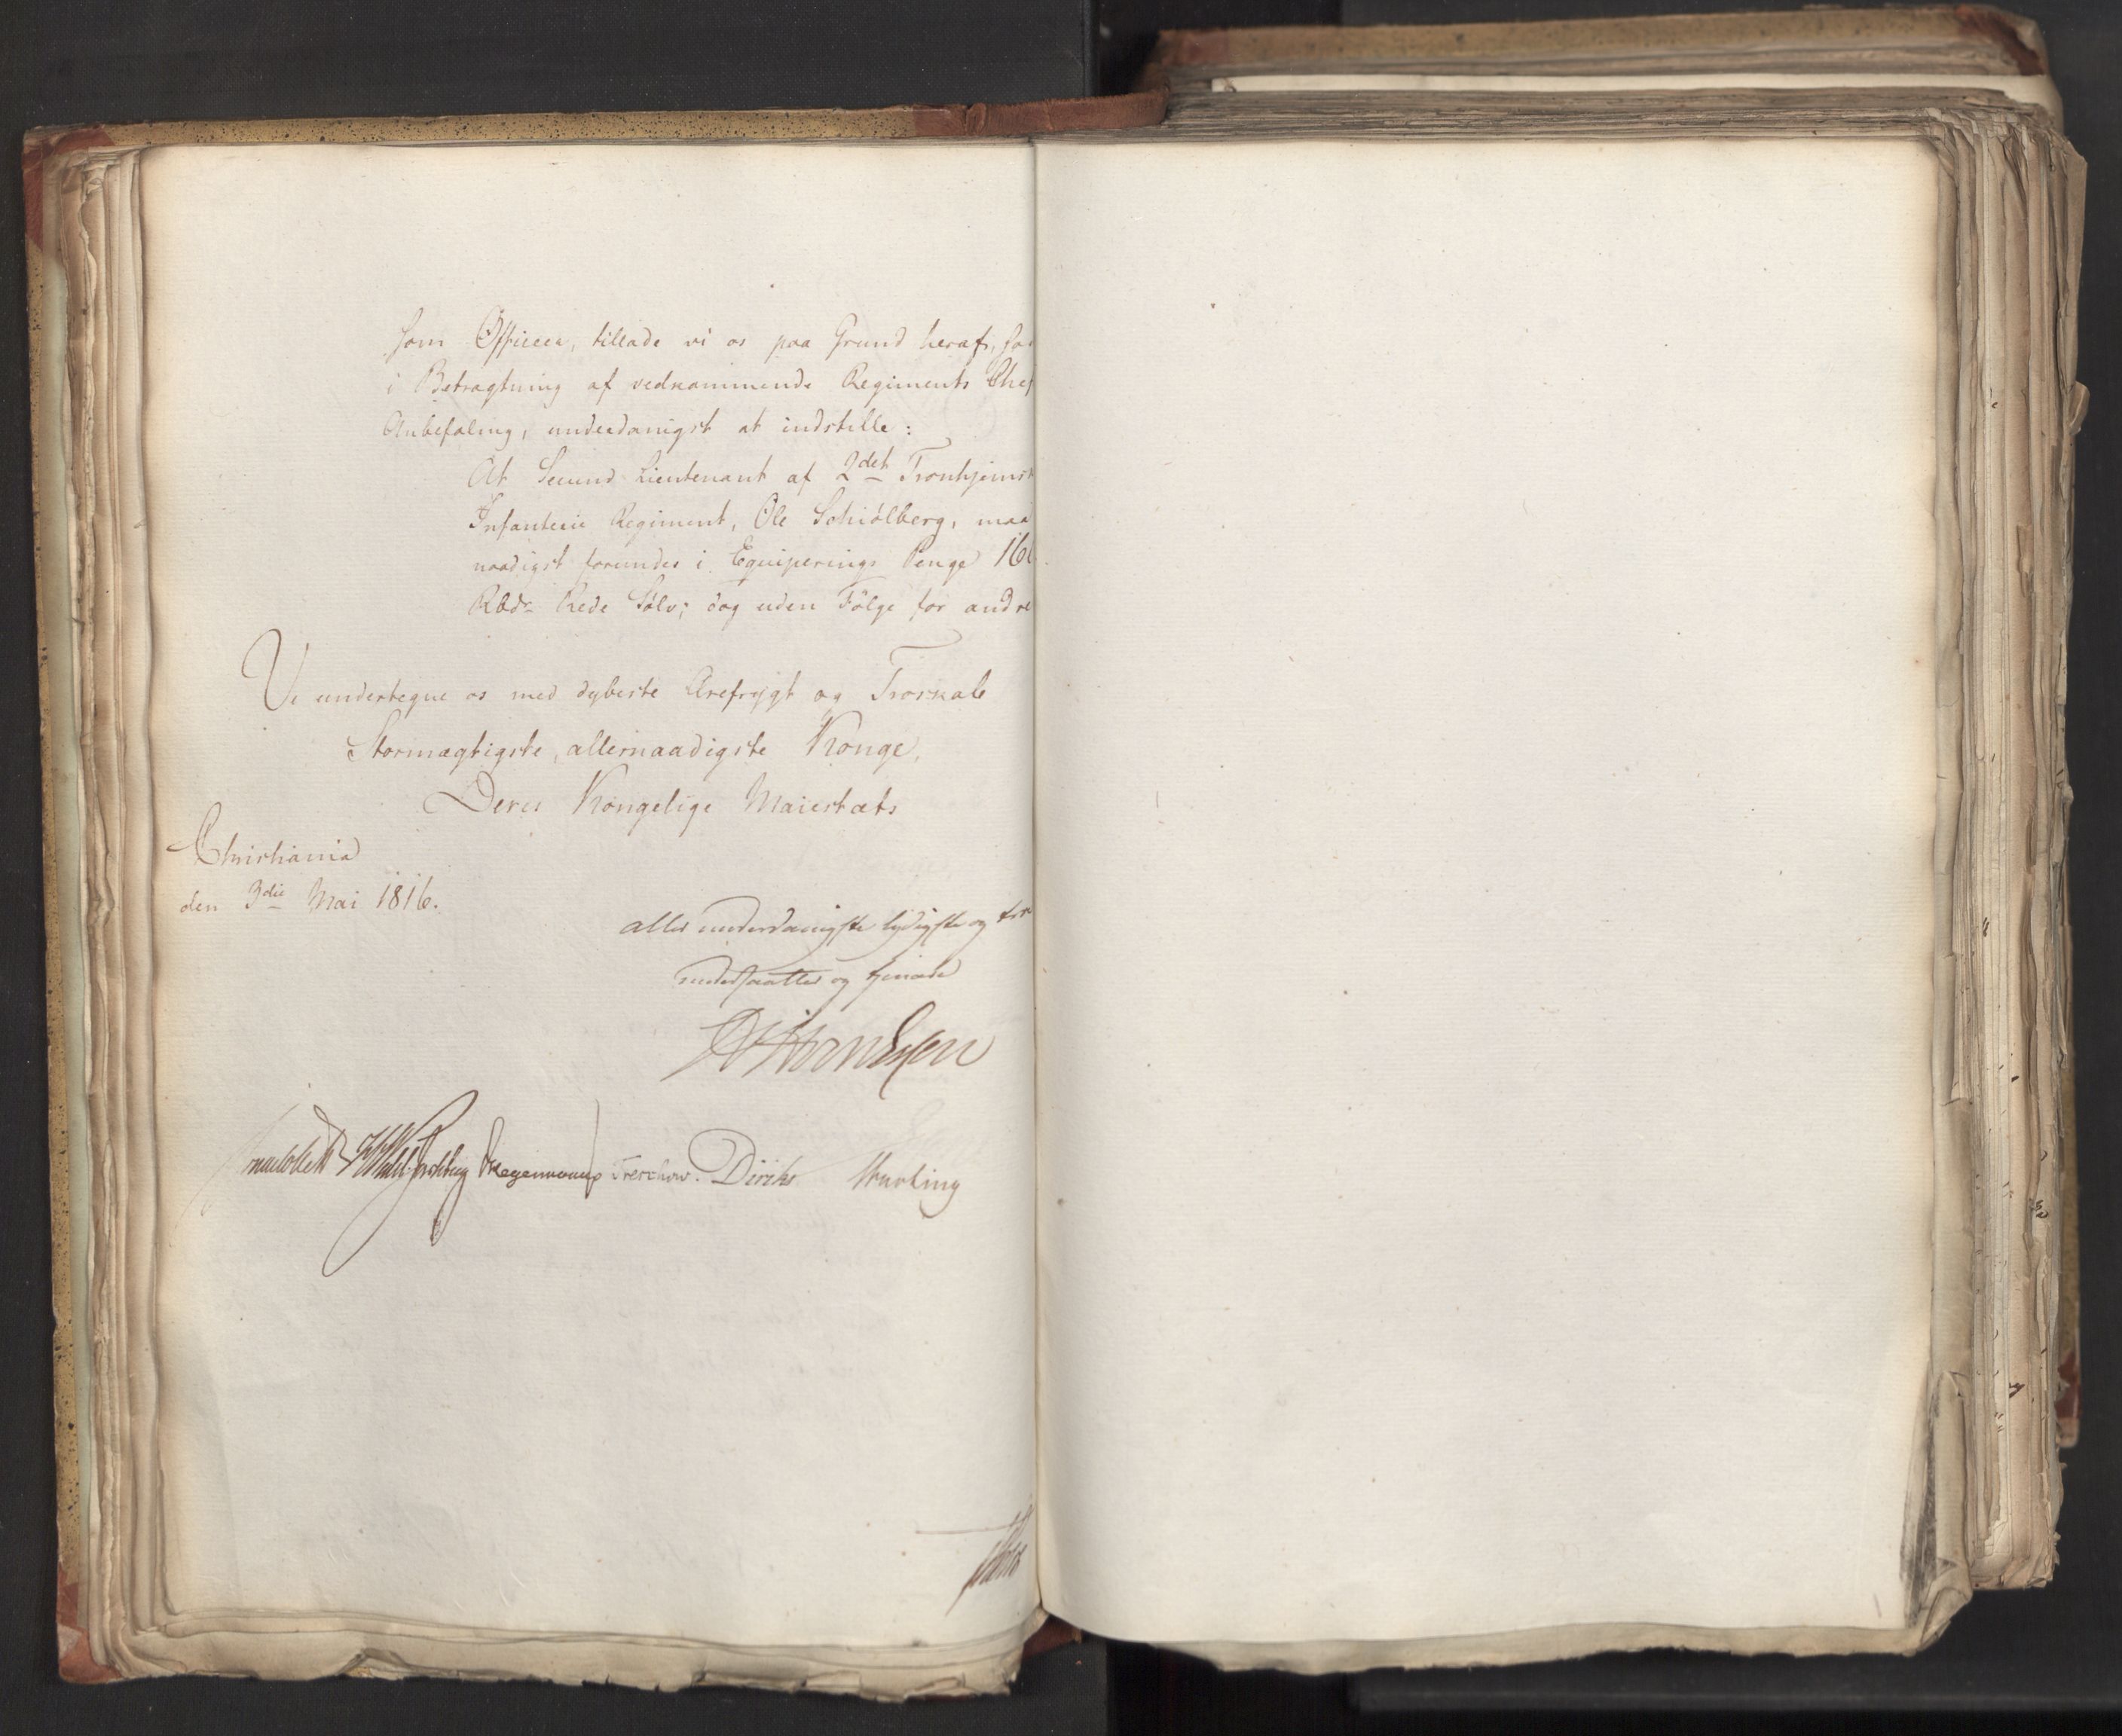 som Officeer, tillade vi os paa Grund heraf, sa
i Betragtning af vedkommende Regiments Chef
Anbefaling, underdanigst at indstille:
At Secund Lieutenant af 2det Tronhjemsk
Infanterie Regiment, Ole Schiølberg, maa
naadigst forundes i Equiperings Penge 160
Rbdr Rede Sølv; dog uden Følge for andre
Vi undertegne os med dybeste Ærefrygt og Troskab
Stormægtigste, allernaadigste Konge,
Deres Kongelige Maiestæts
Christiania
den 3die Mai 1816.
aller underdanigste lydigste og tro
undersaatter og tjenere
Treschow. Diriks